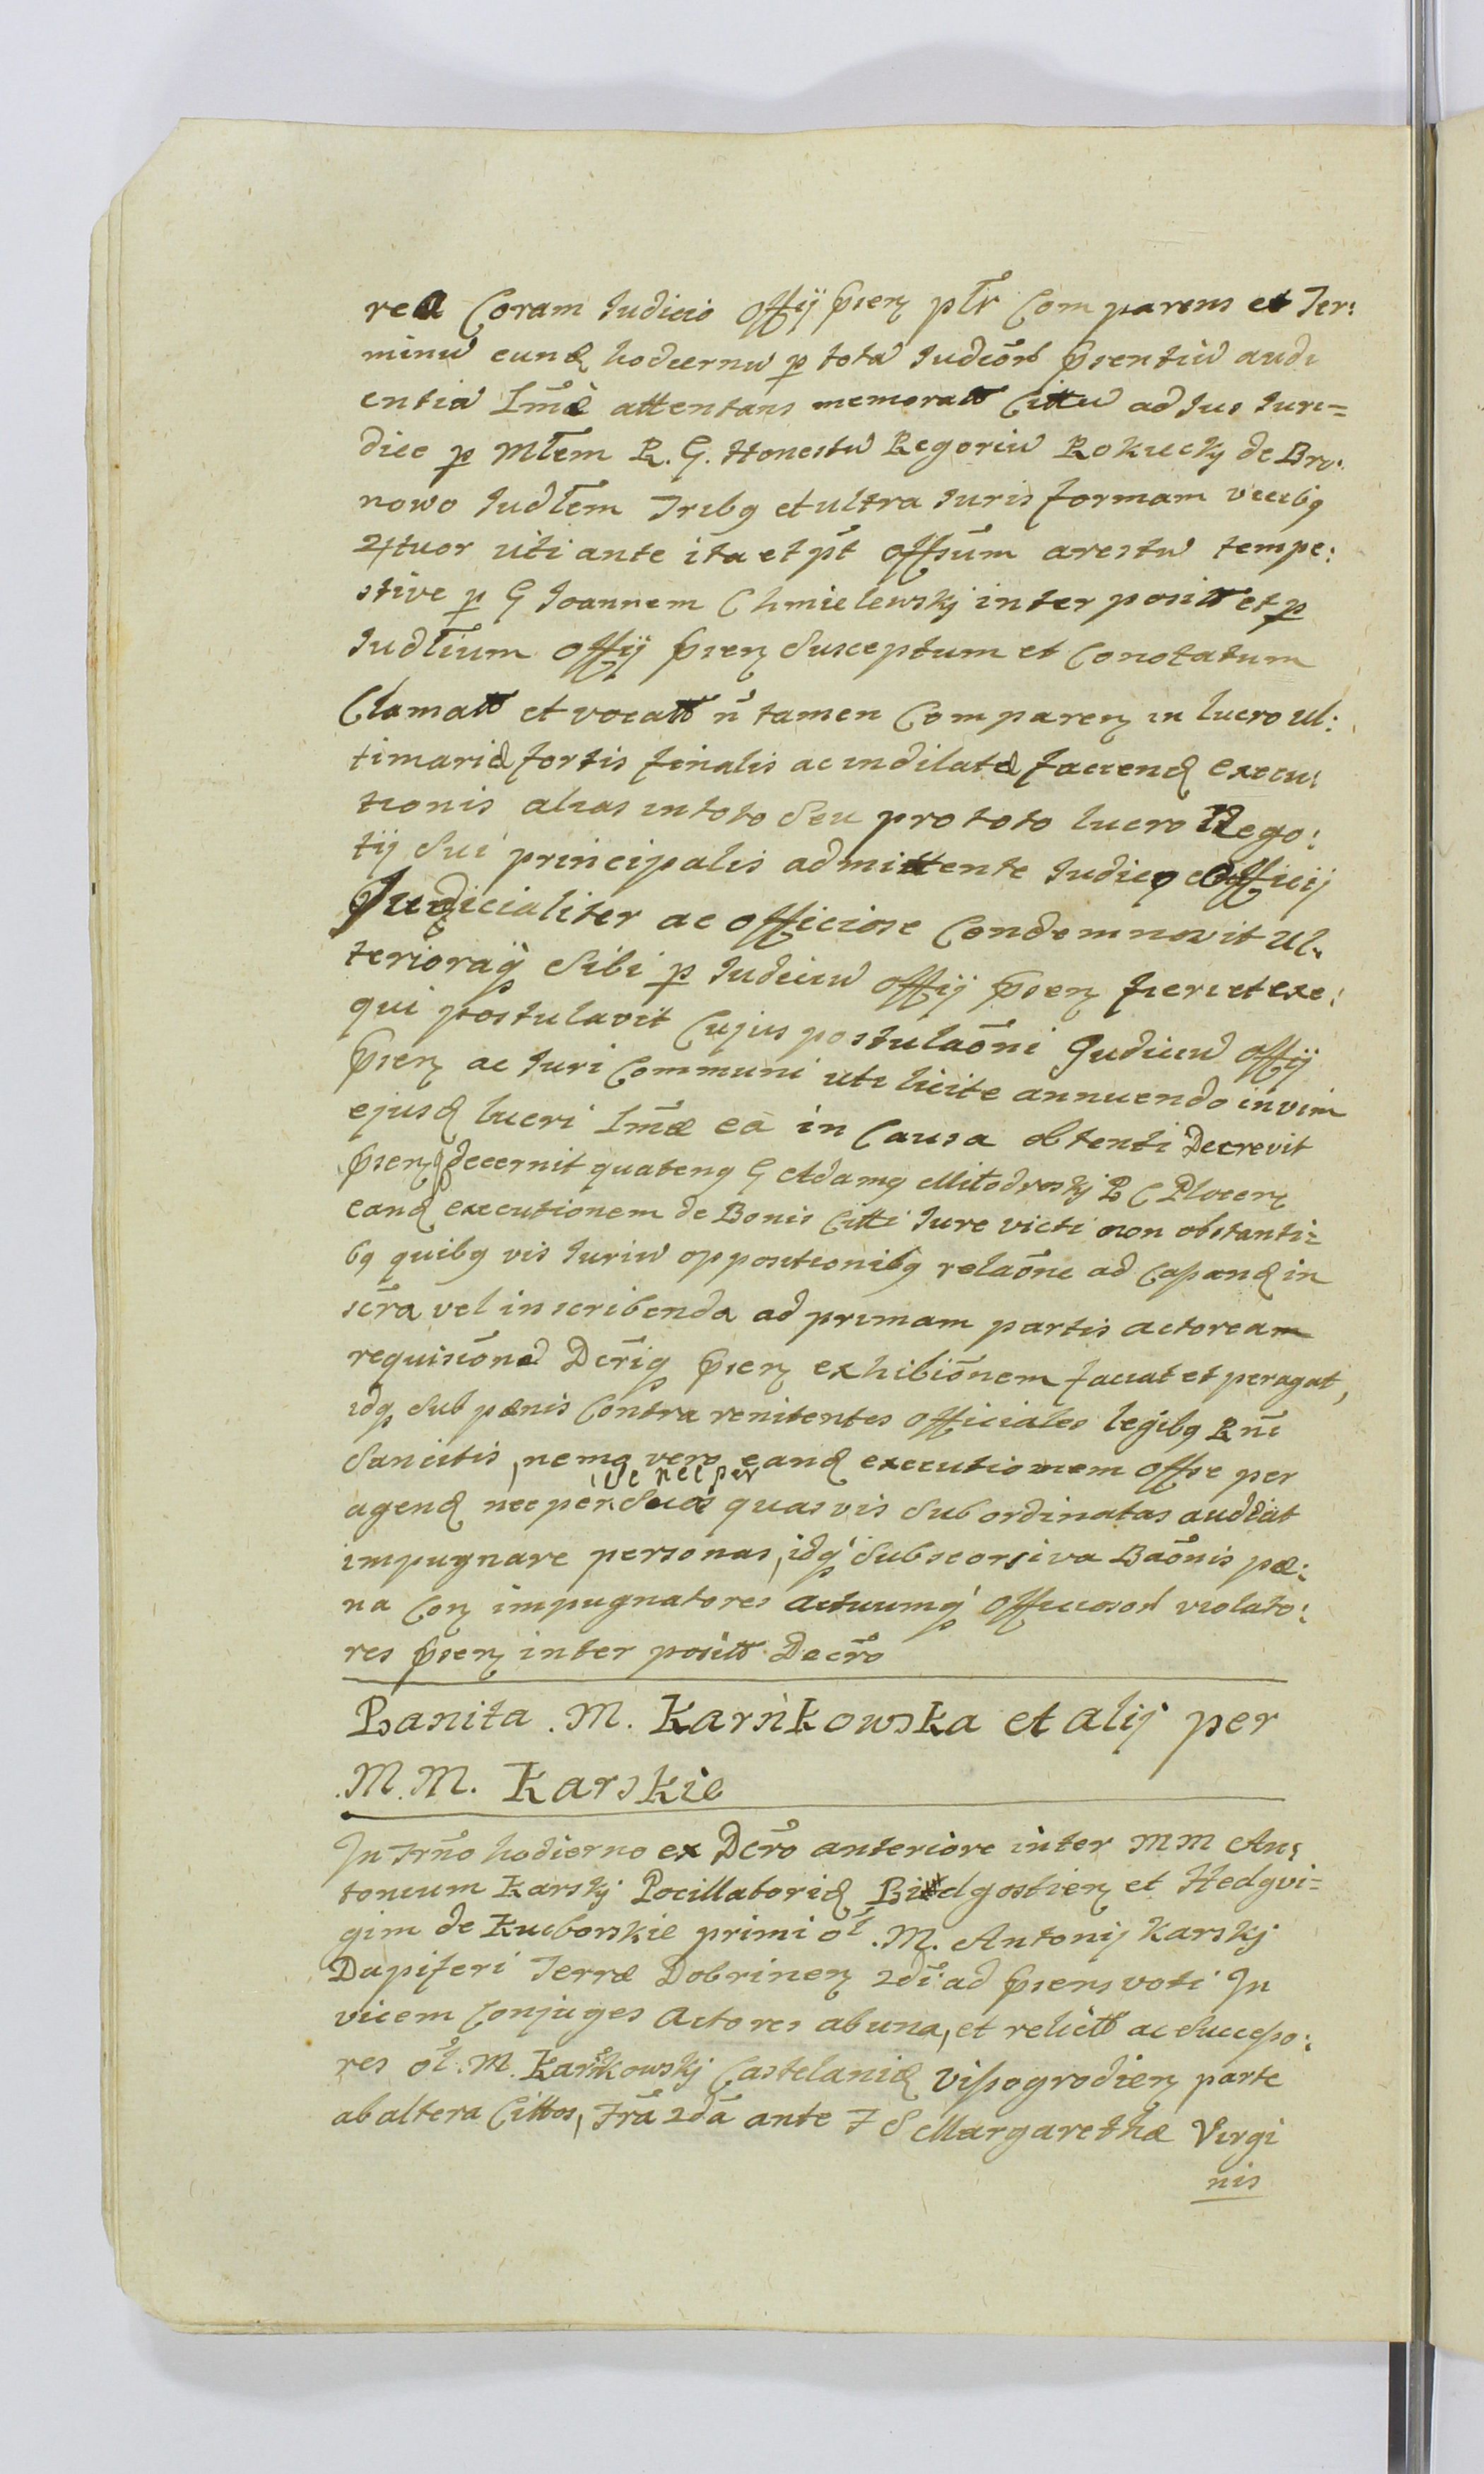 rea Coram Judicio Offij psen ptr Comparens et Ter:
minū eund hodiernū p totā Judiōrl psentiū audi
entiā Imæ attentans memoratt Cittū ad Jus Juri=
dice p Mtem R. G. Honestū Regoriū Rokucky de Bro:
nowo Judlem Tribq et ultra Juris formam vicibq
4tuor uti ante ita et pt offsum arestū tempe:
stive p G Joannem Chmielewskj interpositt et p
Judtium Offij psen Susceptum et Conotatum
Clamatt et vocatt ñ tamen Comparen in lucro ul:
timariæ fortis finalis ac indilatæ faciend execu:
tionis alias in toto Seu pro toto lucro Nego:
tij Sui principalis admittente Judicio Officij
Judicialiter ac officiose Condemnavit Ul:
terioraq Sibi p Judiciū Offij psen fieri et exe:
qui postulavit Cujus postulaōni Judiciū Offij
psen ac Juri Communi uti licite annuendo in vim
ejusd lucri Imæ eā in Causa obtenti Decrevit
psenq decernit quatenq G Adamq Mitodroskj B C Plocen
eand executionem de Bonis Citti Jure victi non obstanti=
bq quibq vis Juriū oppositionibq relaōne ad Capand in
scra vel inscribenda ad primam partis actoream
requisiōnē Dcriq psen exhibiōnem faciat et peragat,
idq Sub pænis Contra renitentes Officiales legibq Rni
Sancitis, nemo vero eand executionem offse per
ive nec per
agend nec per Suas quasvis Subordinatas audeat
impugnare personas, idq Sub seorsiva Baōnis pæ:
na Con impugnatores actuumq officiosorl violato:
res psen interpositt Decro
Banita M. Karnkowska et alij per
M. M. Karskie
In Trno hodierno ex Dcro anteriore inter MM An:
tonium Karskj Pocillatorid Bidgostien et Hedgvi=
gim de Kucborskie primi ol M. Antonij Karskj
Dapiferi Terræ Dobrinen 2di ad psens voti In
vicem Conjuges Actores ab una, et relictt ac Successo:
res ol M. Karnkowskj Castelanid Vissogrodien parte
ab altera Cittos, Fra 2da ante F S Margarethæ Virgi
nis